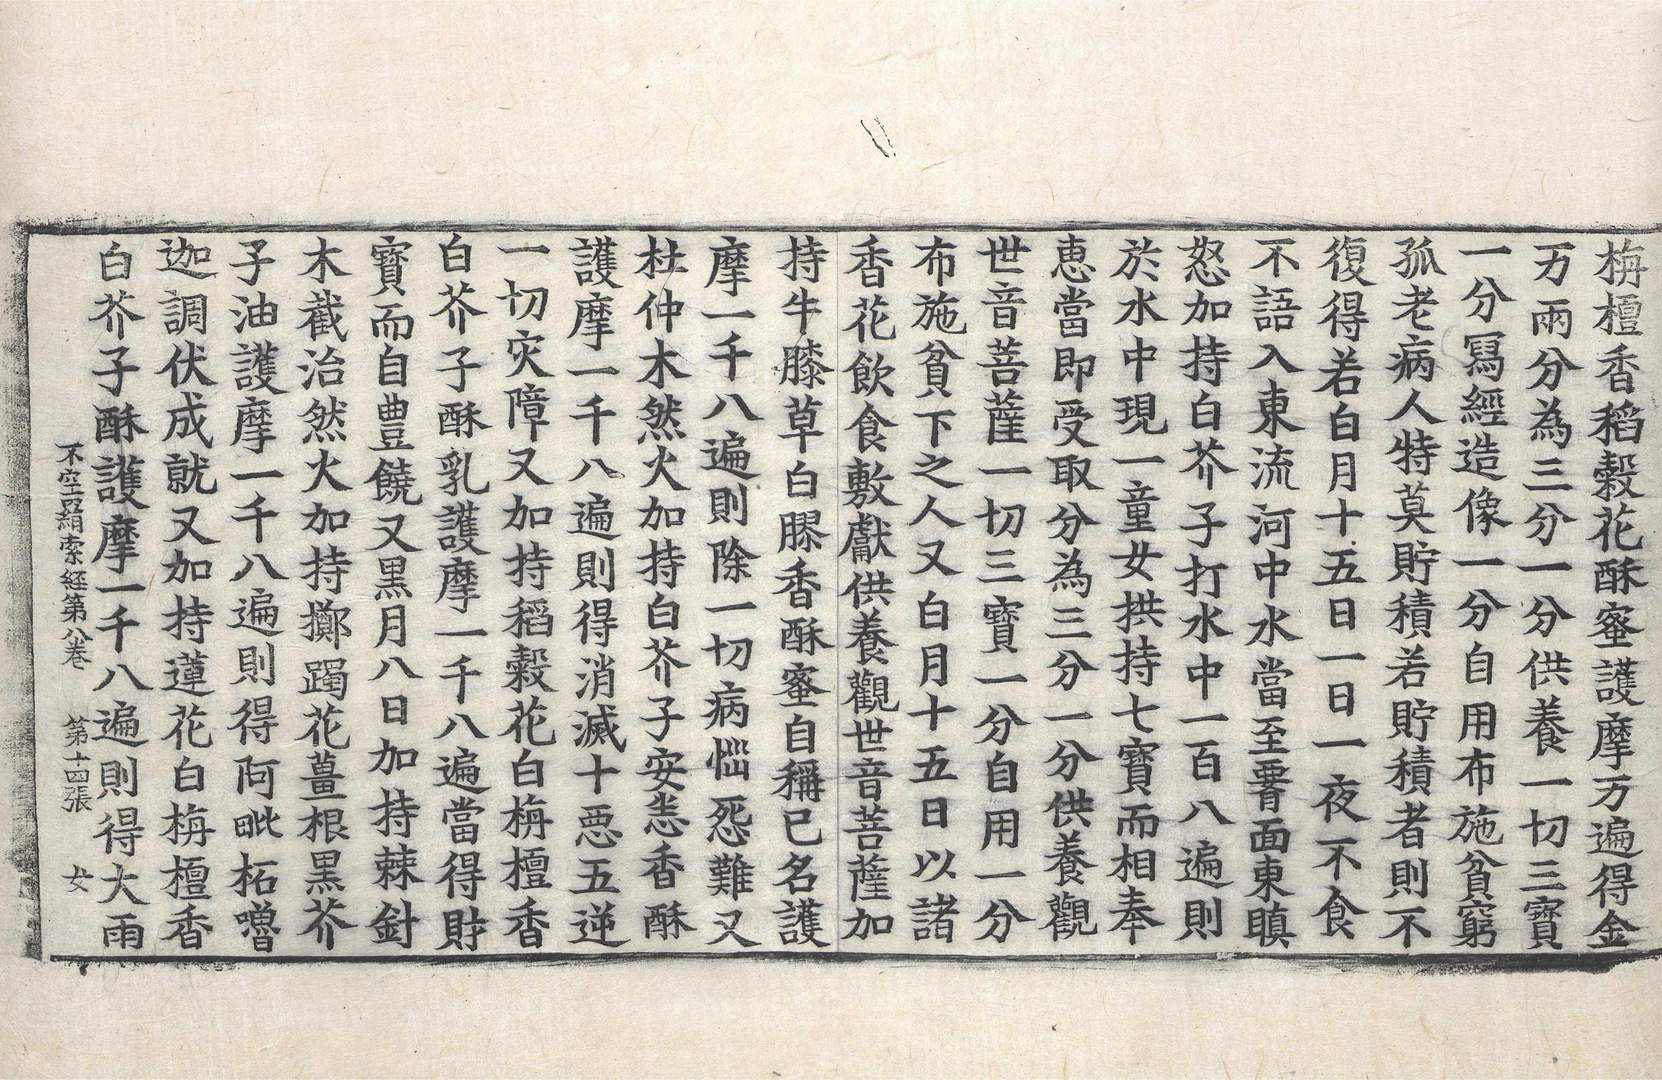 栴檀香稻糓花酥蜜護摩万遍得金
万兩分為三分一分供養一切三寶
一分寫經造像一分自用布施貧窮
孤老病人特莫貯積若貯積者則不
復得若白月十五日一日一夜不食
不語入東流河中水當至䏶面東瞋
怒加持白芥子打水中一百八遍則
於水中現一童女拱持七寶而相奉
恵當即受取分為三分一分供養觀
世音菩薩一切三寶一分自用一分
布施貧下之人又白月十五日以諸
香花飲食敷獻供養觀世音菩薩加
持牛膝草白膠香酥蜜自稱已名護
摩一千八遍則除一切病惱怨難又
杜仲木然火加持白芥子安悉香酥
護摩一千八遍則得消滅十惡五逆
一切灾障又加持稻糓花白栴檀香
白芥子酥乳護摩一千八遍當得財
寶而自豊饒又黒月八日加持棘針
木截治然火加持擲躅花薑根黒芥
子油護摩一千八遍則得阿毗柘嚕
迦調伏成就又加持蓮花白栴檀香
白芥子酥護摩一千八遍則得大雨
不空羂索経第八卷 第十四張 女